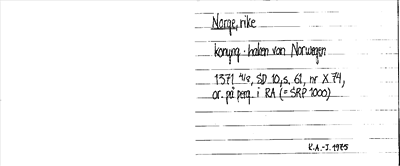 Norge, rike
konung · haken van Norwegen
1371 4/8, SD 10, s. 61, nr X 74,
or. på perg. i RA (= SRP 1000)
R.A.-J. 1975